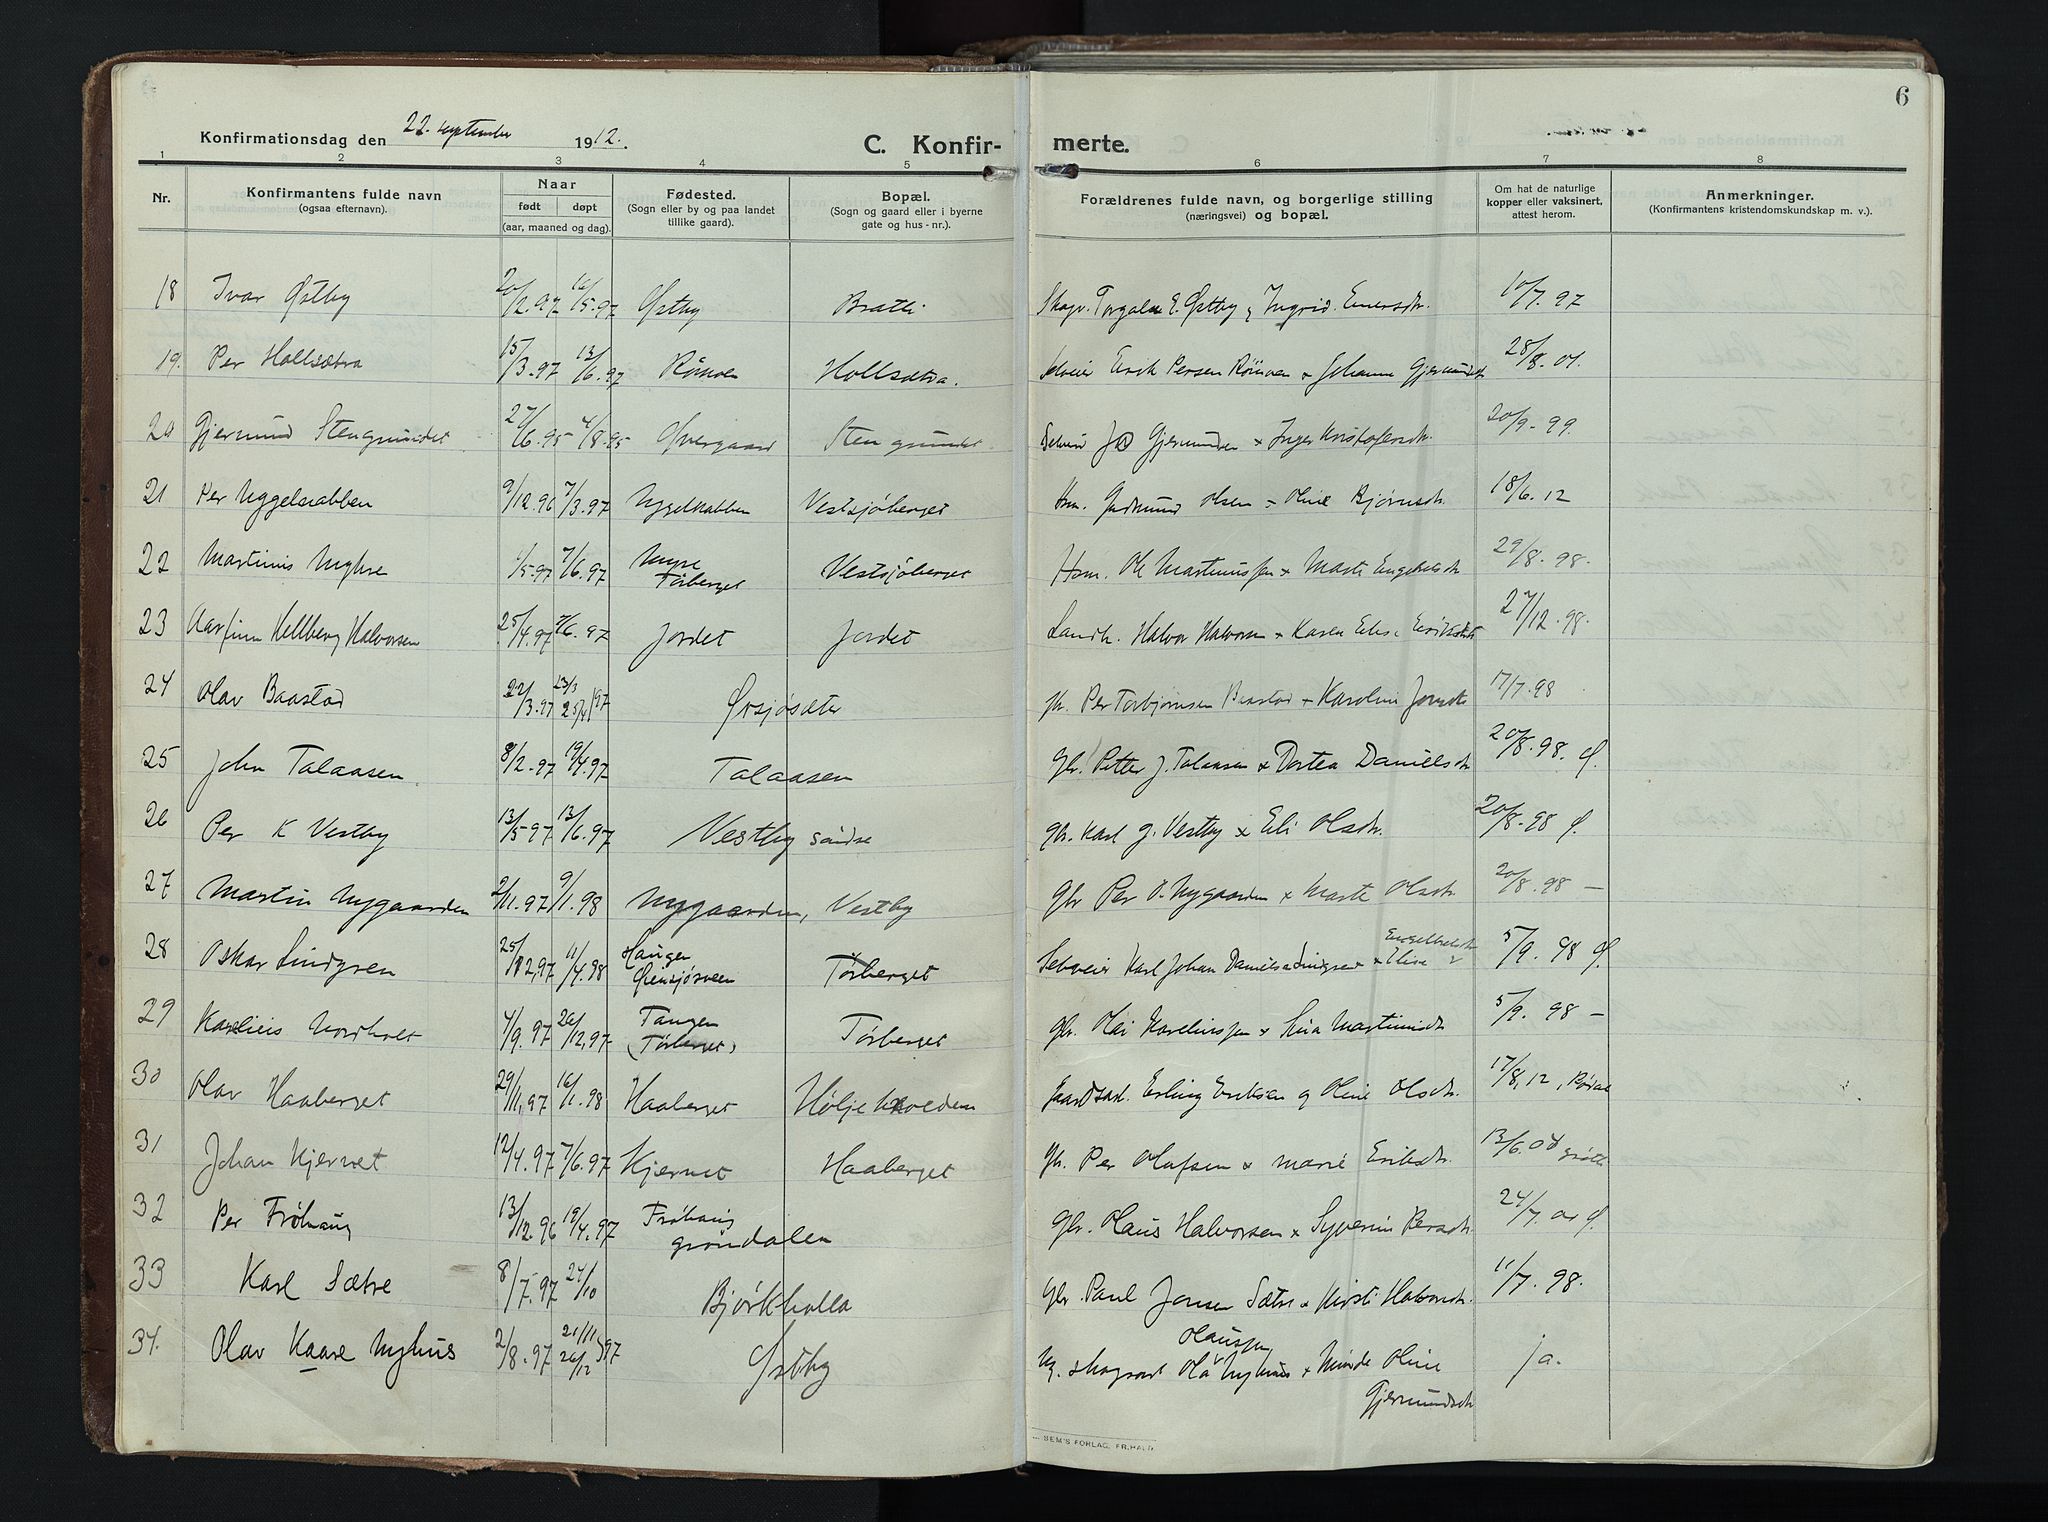 6
Konfirmationsdag den 22. september 1912.
C. Konfir- merte.
1 2 3 4 5 6 7 8
Nr.
Konfirmantens fulde navn
(ogsaa efternavn).
Naar
født døpt
(aar, maaned og dag).
Fødested.
(Sogn eller by og paa landet
tillike gaard).
Bopæl.
(Sogn og gaard eller i byerne
gate og hus-nr.).
Forældrenes fulde navn, og borgerlige stilling
(næringsvei) og bopæl.
Om hat de naturlige
kopper eller vaksinert,
attest herom.
Anmerkninger.
(Konfirmantens kristendomskundskap m. v.).
18 Ivar Østby 20/2.97 16/5.97 Østby Bratli E. Østby Ingrid 10/7.97
19. Per Hollsætra 15/3.97 13/6.97 Hollsætra. Selveier Erik Persen 28/8.01.
20 Gjermund Stengrundet 27/6.95 4/8.95 Øvergaard Stengrundet Gjermundsen x Inger Kristofersdtr. 20/9-99
21 Per Nygelnabben 9/12.96 7/3.97 Nygelnabben Vestsjøberget Hsm. Gudmund Olsen - Oline Bjørnsdtr. 18/6.12
22 Martinus Myhre 1/5.97 7/6.97 Myre
Tørberget Vestsjøberget Hsm. Ole Martinussen x Marte Engebretsdtr 29/8.98.
23 Aarfinn Kellberg Halvorsen 25/4.97 7/6.97 Jordet Jordet Landh. Halvor Halvorsen x Karen Elise Eriksdtr 27/12.98.
24 Olav Baastad 22/3.97 23/3 25/4 97 Ørsjøsæter Per Torbjørnsen Baastad x Karoline Jonsdtr 17/7.98
25 John Talaasen 8/2.97 19/4.97 Talaasen Gbr. Petter J. Talaasen x Dortea Danielsdtr 20/8.98.
26 Per K Vestby 13/5.97 13/6.97 Vestby søndre Gbr. Karl J. Vestby x Eli Olsdtr. 20/8.98
27 Martin Nygaarden 2/11.97 9/1.98 Nygaarden, Vestby Gbr Per O. Nygaarden x Marte Olsdtr 20/8.98 —
28 Oskar Lindgren 25/12.97 11/4.98 Haugen Tørberget Selveier Karl Johan Lindgren x Elise Engelbretsdtr 5/9.98
29 Karelius Nordholt 4/9.97 26/12.97 Tangen
(Tørberget) Tørberget Gbr. Karelinssen x Martinusdtr 5/9.98 —
30 Olav Haaberget 29/11.97 16/1.98 Haaberget Erling Eriksen og Oline Olsdtr. 17/8.12,
31 Johan Kjernet 12/4.97 7/6.97 Kjernet Haaberget Per Olafsen x Marie Eriksdtr. 13/6.04
32 Per Frøhaug 13/12.96 19/4.97 Frøhaug
Grøndalen Gbr. Olaus Halvorsen x Syverine Persdtr. 24/7.
33 Karl Sætre 8/7.97 24/10 Bjørkholla Gbr. Paul Jonsen Sætre x Kirsti Halvorsdtr. 11/7.98.
34. Olav Kaare Nyhus 2/8.97 21/11 26/12 97 Østby Olaussen
Ola Nyhus x Oline
Gjermundsdtr ja.
SEM'S FORLAG, FR.HALD